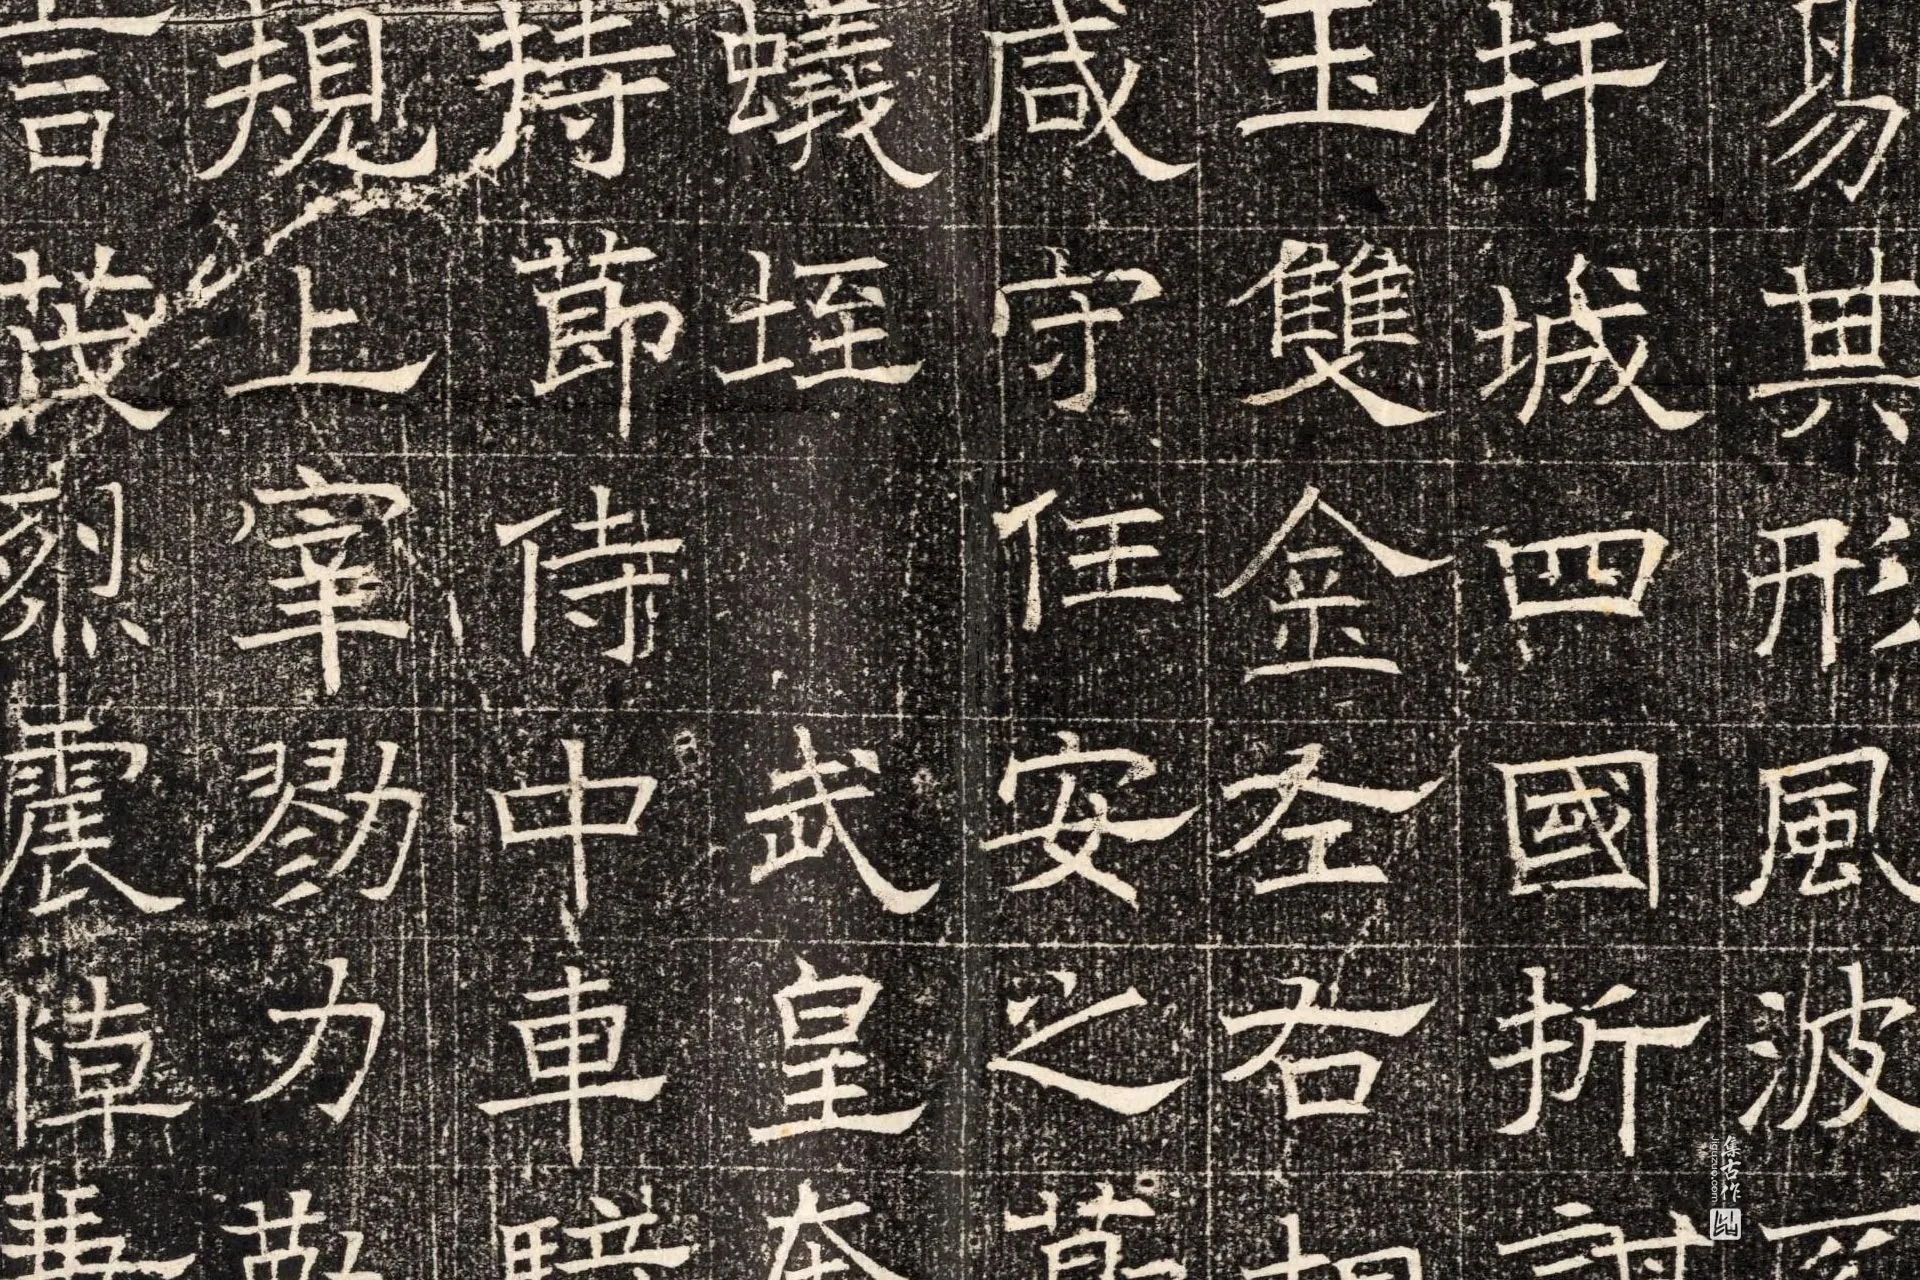 易其形風波
扞城四國折
玉雙金左右
咸守任安之
蟻垤武皇
持莭侍中車
規上宰勠力
言茂烈震
集古作
jiguzuo.com